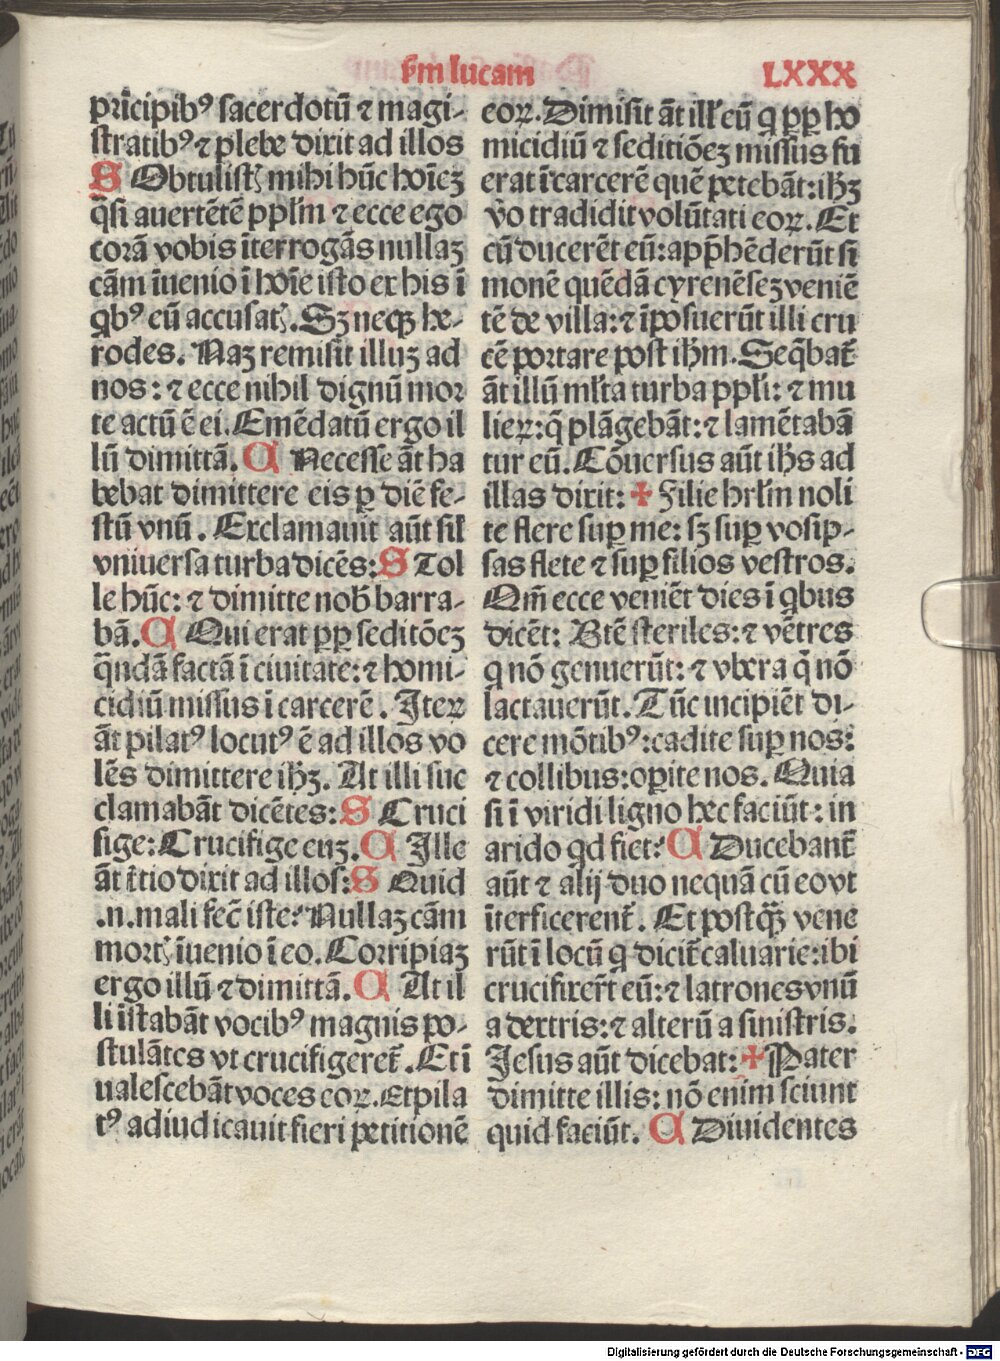 ẜm lucam LXXX
prīcipibꝰ sacerdotū ⁊ magi-
stratibꝰ ⁊ plebe dixit ad illos
S Obtulistꝭ mihi hūc hoīeꝫ
q̄si auertētē ppl̄m ⁊ ecce ego
corā vobis īterrogās nullaꝫ
cām īuenio ī hoīe isto ex his ī
qͥbꝰ eū accusatꝭ. Sꝫ neqꝫ he-
rodes. Naꝫ remisit illuꝫ ad
nos: ⁊ ecce nihil dignū mor
te actū ē ei. Emēdatū ergo il
lū dimittā. C Necesse āt ha
bebat dimittere eis ꝑ diē fe-
stū vnū. Exclamauit aūt sil̄
vniuersa turba dicēs: S Tol
le hūc: ⁊ dimitte nob̄ barra-
bā. C Qui erat ꝓpꝑ seditōeꝫ
q̄ndā factā ī ciuitate: ⁊ homi-
cidiū missus ī carcerē. Iteꝝ
āt pilatꝰ locutꝰ ē ad illos vo
lēs dimittere ihꝫ. At illi suc
clamabāt dicētes: S Cruci
fige: Crucifige euꝫ. C Ille
āt t̄tio dixit ad illos: S Quid
.n. mali fec̄ iste? Nullaꝫ cām
mortꝭ īuenio ī eo. Corripiaꝫ
ergo illū ⁊ dimittā. C At il
li īstabāt vocibꝰ magnis po-
stulātes vt crucifigeret̄. Et ī
ualescebāt voces eoꝝ. Et pila
tꝰ adiudicauit fieri petitionē
eoꝝ. Dimisit āt ill̄ eū q ꝓpꝑ ho
micidiū ⁊ seditiōeꝫ missus fu
erat ī carcerē quē petebāt: ihꝫ
v̊o tradidit volūtati eoꝝ. Et
cū ducerēt eū: app̄hēderūt si
monē quēdā cyrenēseꝫ veniē
tē de villa: ⁊ īposuerūt illi cru
cē portare post ihm̄. Seq̄bat̄
āt illū ml̄ta turba ppl̄i: ⁊ mu
lieꝝ: q̄ plāgebāt: ⁊ lamētabā
tur eū. Cōuersus aūt ihs̄ ad
illas dixit: ✚ Filie hrl̄m noli
te flere suꝑ me: sꝫ suꝑ vosip-
sas flete ⁊ suꝑ filios vestros.
Qm̄ ecce veniēt dies ī qͥbus
dicēt: Btē steriles: ⁊ vētres
q nō genuerūt: ⁊ vbera q̄ nō
lactauerūt. Tūc incipiēt di-
cere mōtibꝰ: cadite suꝑ nos:
⁊ collibus: oꝑite nos. Quia
si ī viridi ligno hec faciūt: in
arido qd fiet? C Ducebant̄
aūt ⁊ alij duo nequā cū eo vt
īterficerent̄. Et postqꝫ̄ vene
rūt ī locū q dicit̄ caluarie: ibi
crucifixer̄t eū: ⁊ latrones vnū
a dextris: ⁊ alterū a sinistris.
Jesus aūt dicebat: ✚ Pater
dimitte illis: nō enim sciunt
quid faciūt. C Diuidentes
Digitalisierung gefördert durch die Deutsche Forschungsgemeinschaft - DFG